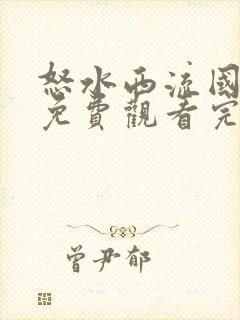 怒水西流國
免費觀看完
曾尹郁